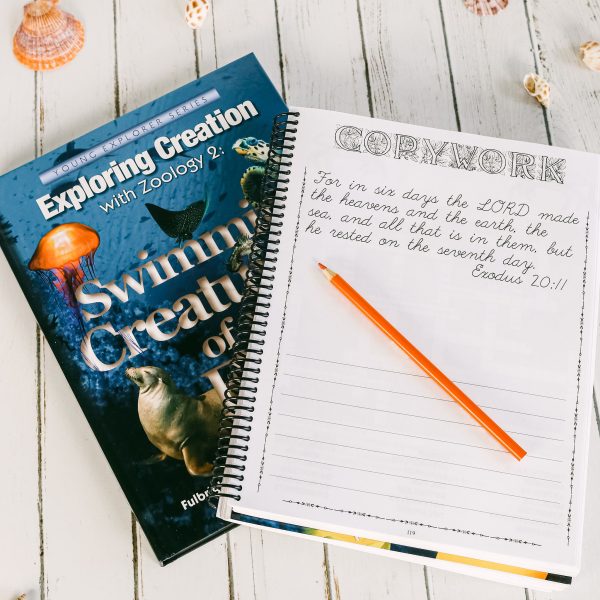 YOUNG EXPLORER SERIES
Exploring Creation
with Zoology 2:
Swimmi
Creatu
of
Fulb
COPYWORK
For in six days the LORD made
the heavens and the earth, the
sea, and all that is in them, but
he rested on the seventh day.
Exodus 20:11
119